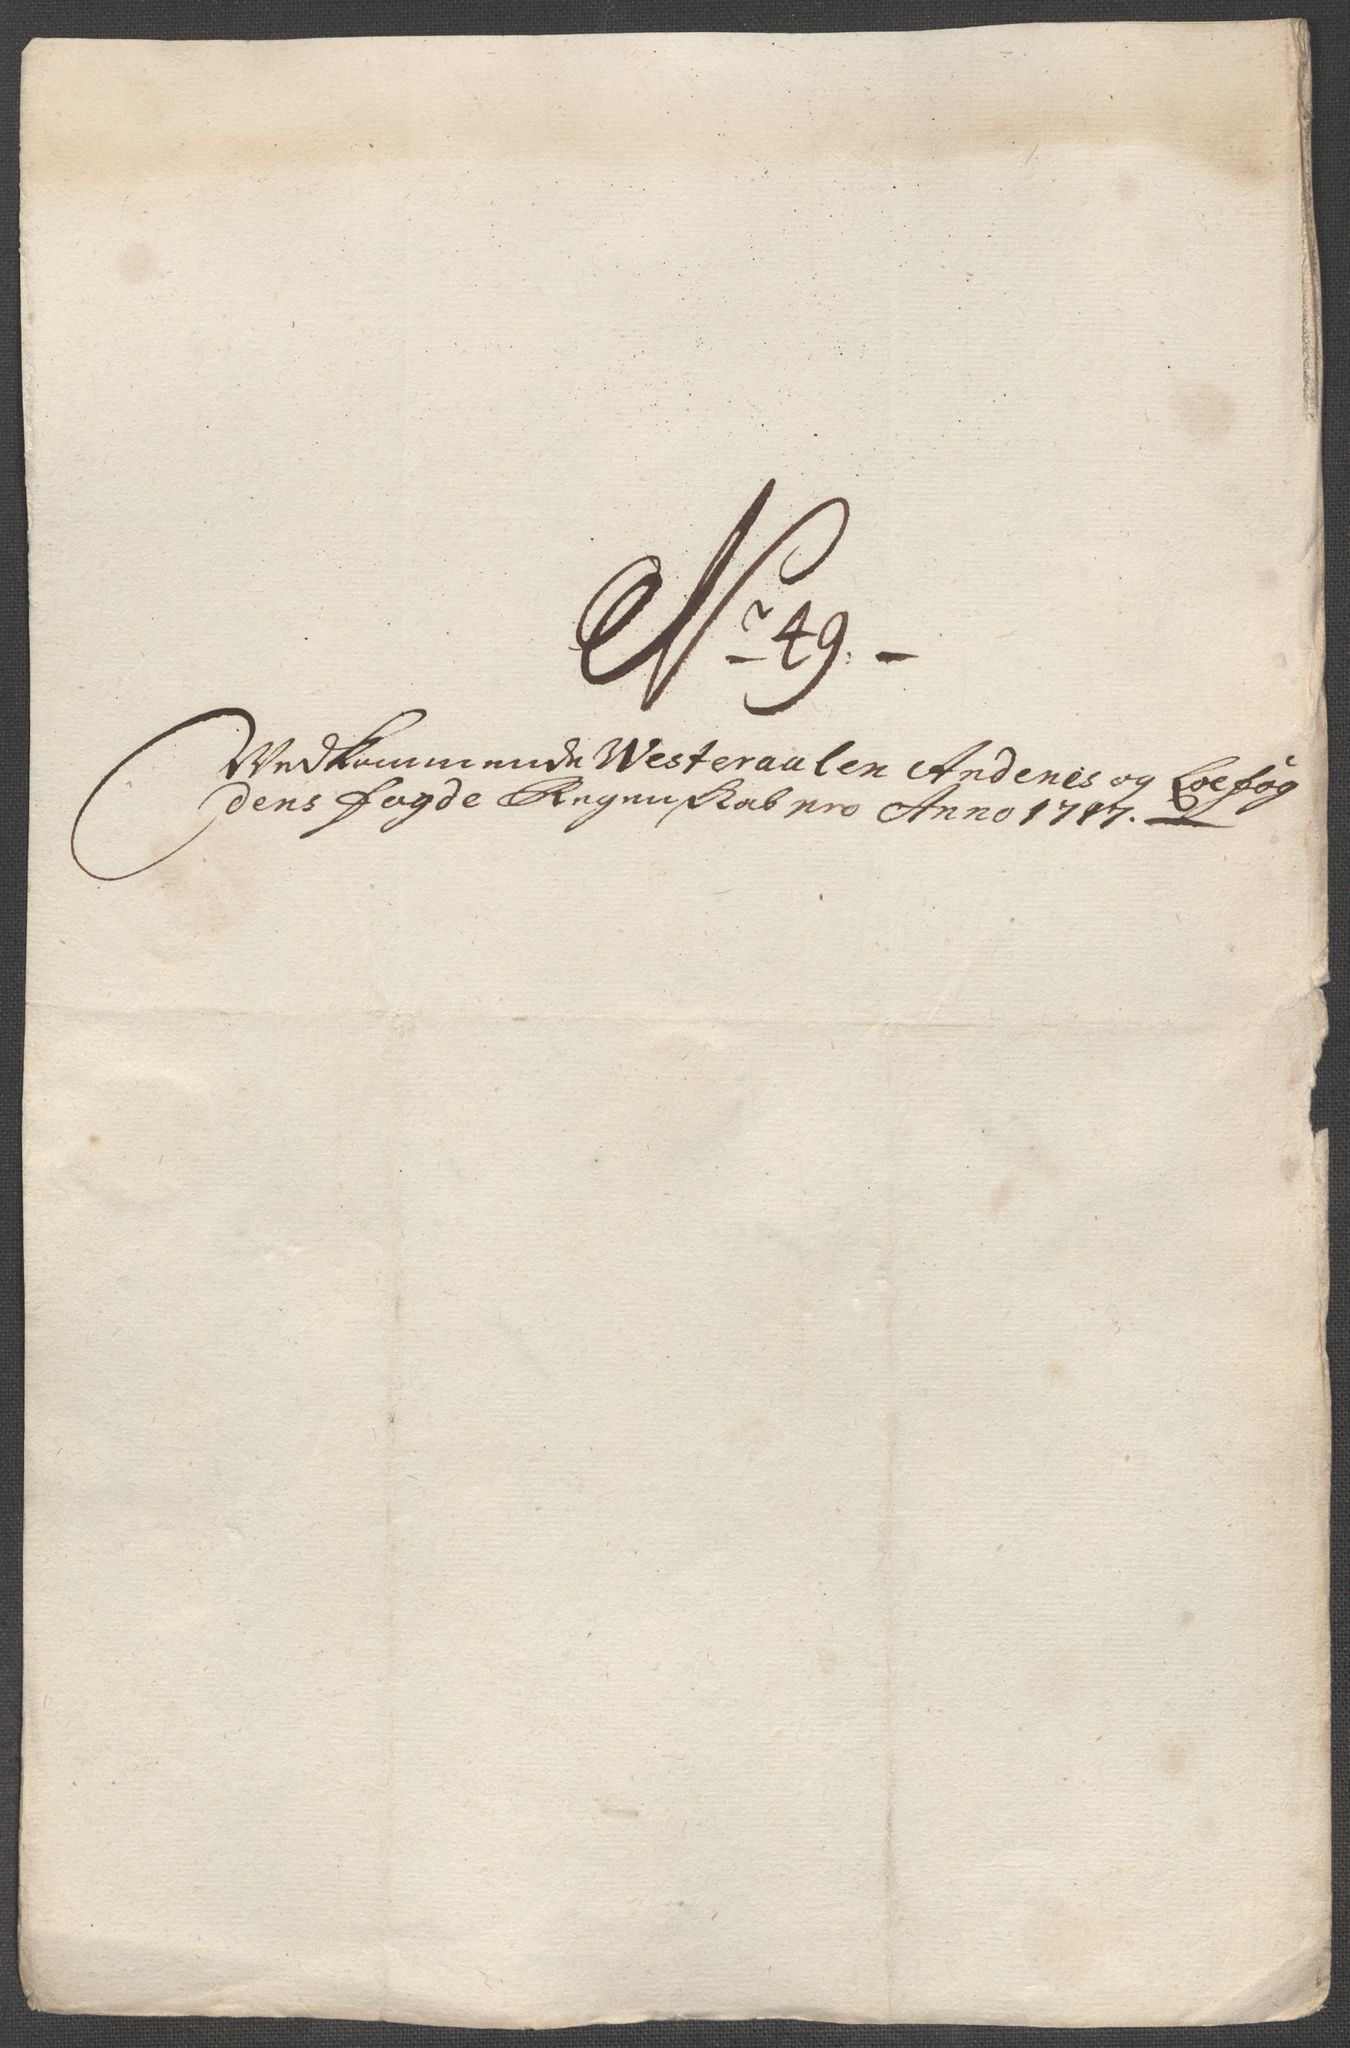 Nr 49. -
Vedkommende Westeraalen Andenis og Loefog
dens fogde Regenskab pro Anno 1717.